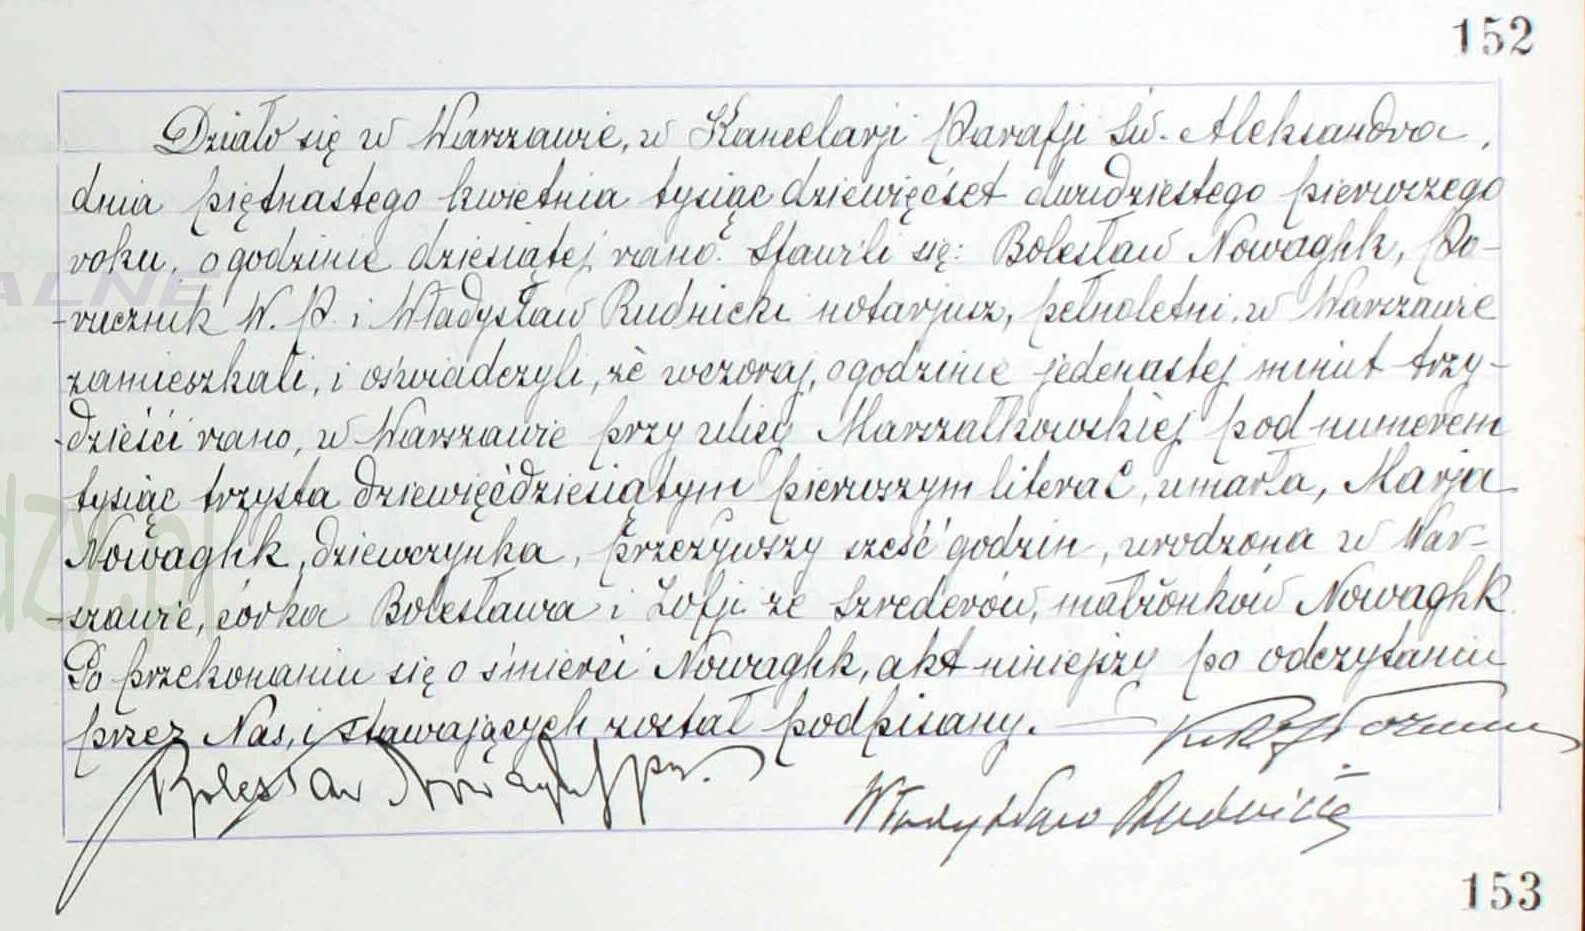 152
Działo się w Warszawie, w Kancelarji Parafji Św. Aleksandra,
dnia piętnastego kwietnia tysiąc dziewięćset dwudziestego pierwszego
roku, o godzinie dziesiątej rano. Stawili się: Bolesław Nowaghk, Po-
-rucznik W. P. i Władysław Rudnicki notarjusz, pełnoletni, w Warszawie
zamieszkali, i oświadczyli, że wczoraj, o godzinie jedenastej minut trzy-
-dzieści rano, w Warszawie przy ulicy Marszałkowskiej pod numerem
tysiąc trzysta dziewięćdziesiątym pierwszym litera C, umarła, Marja
Nowaghk, dziewczynka, przeżywszy sześć godzin, urodzona w War-
-szawie, córka Bolesława i Zofji ze Szrederów, małżonków Nowaghk.
Po przekonaniu się o śmierci Nowaghk, akt niniejszy po odczytaniu
przez Nas, i stawających został podpisany. —
Bolesław
Władysław Rudnicki
153
ALNE
dzy.pl